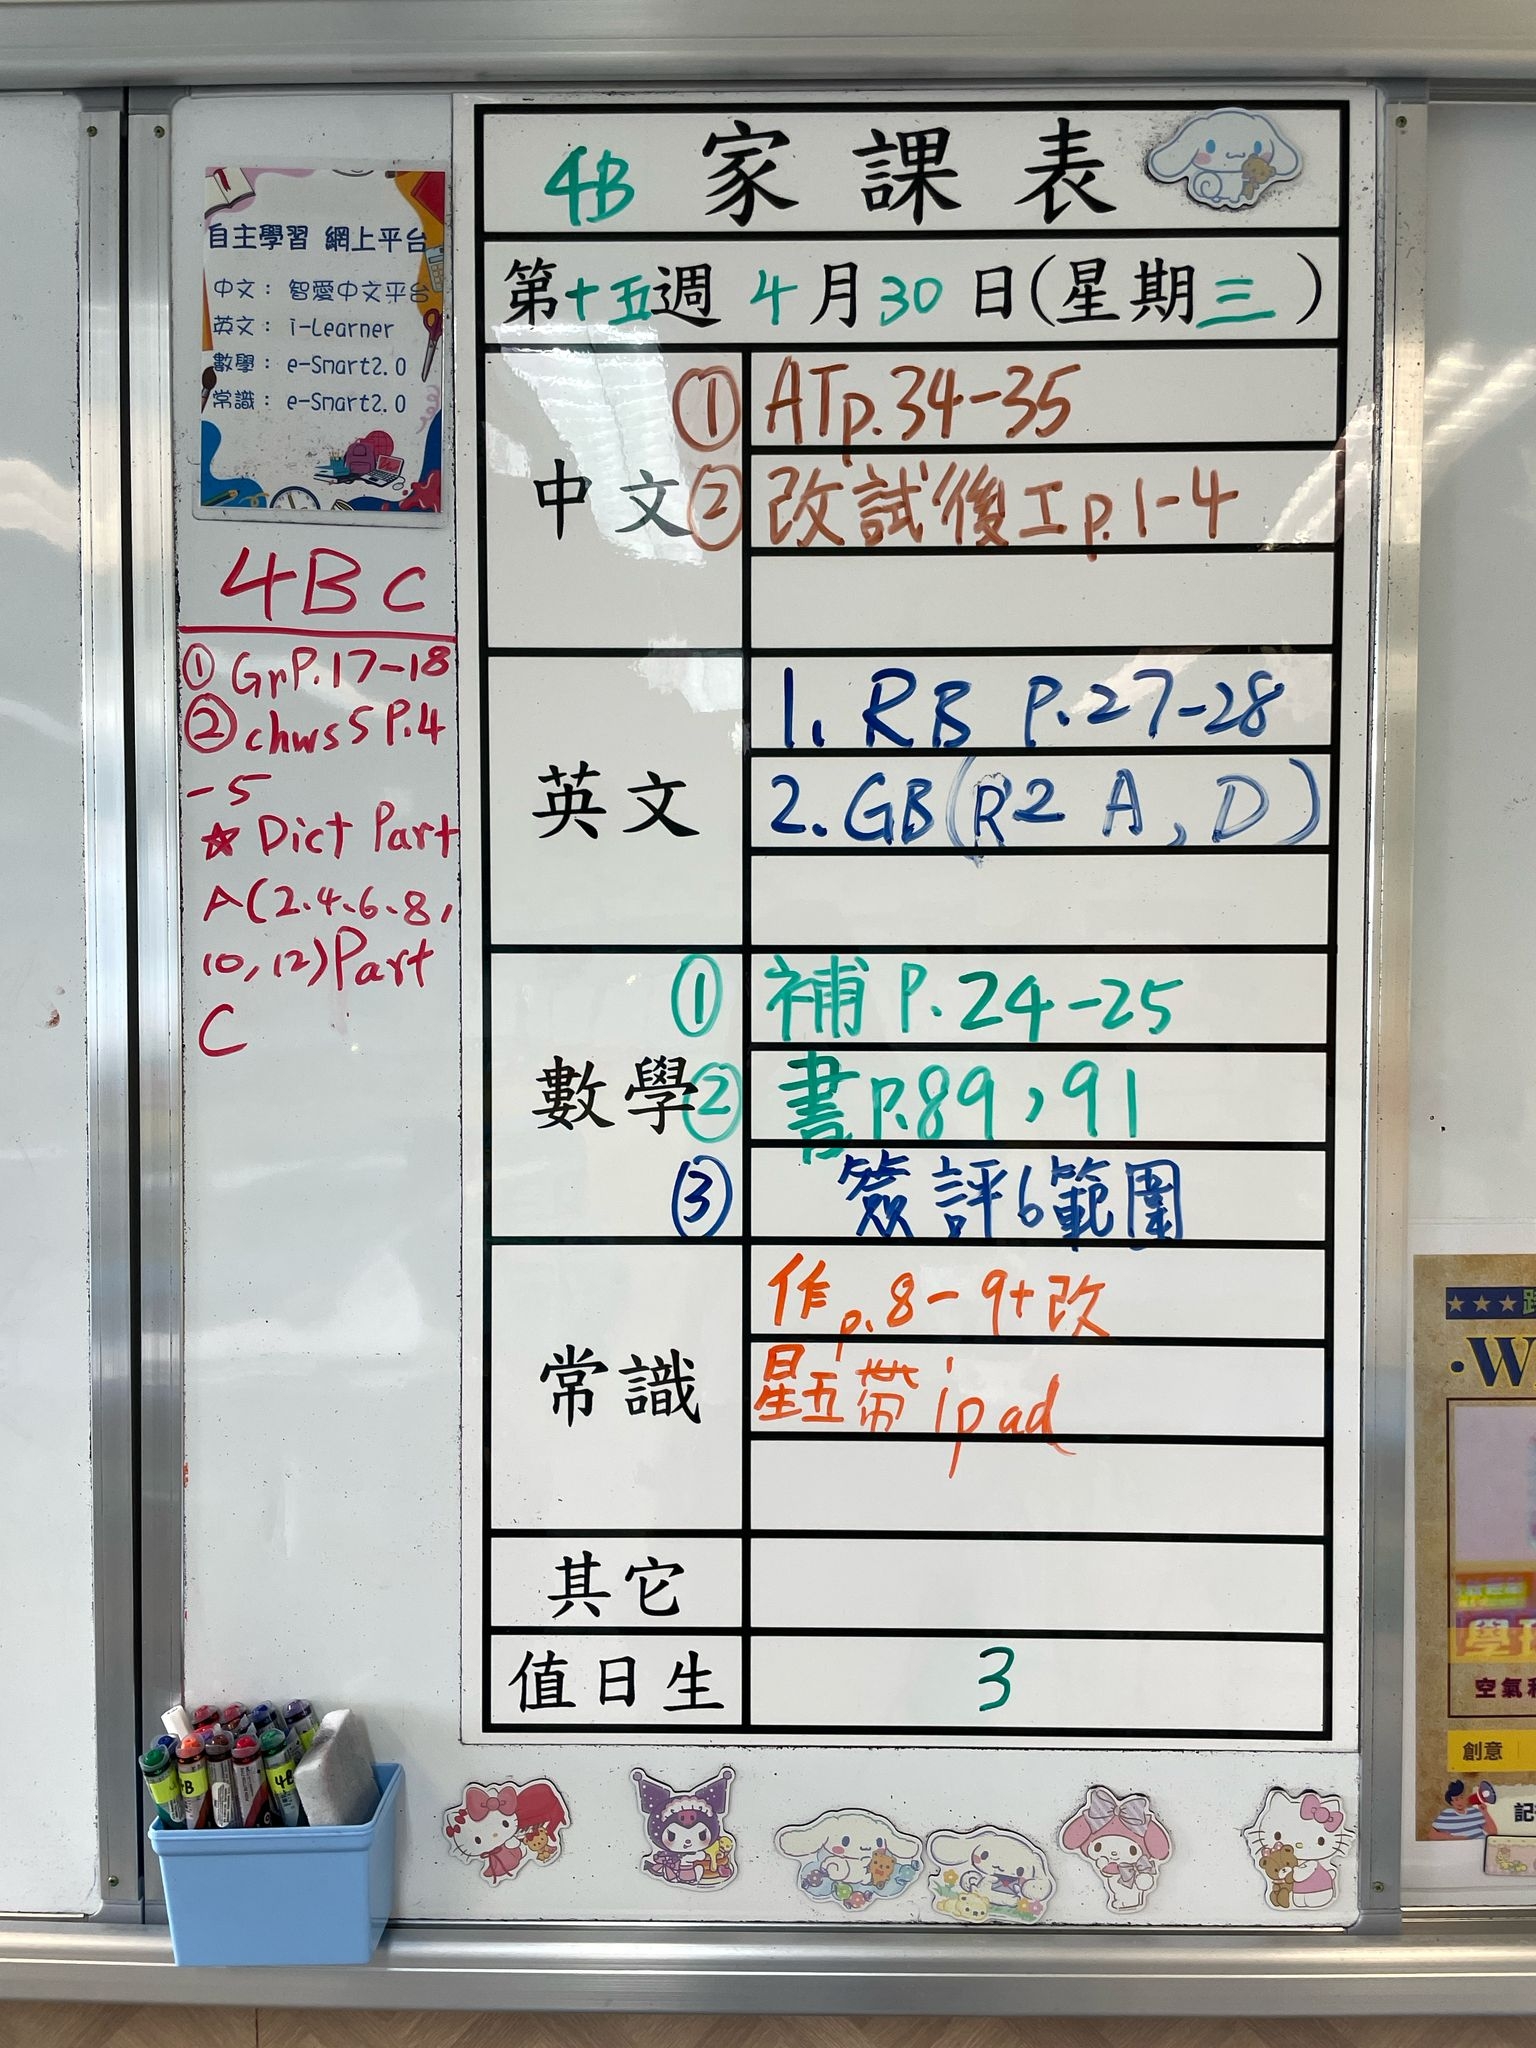 自主學習 網上平台
中文： 智愛中文平台
英文： i-Learner
數學： e-Smart2.0
常識： e-Smart2.0
4BC
① GrP.17-18
② chws5 P.4
-5
☆ Dict Part
A(2.4.6.8,
10,12)Part
C
4B 家課表
第十五週 4月30日(星期三)
中文
① ATp.34-35
② 改試後工p.1-4
英文
1. RB P.27-28
2. GB(R2 A, D)
數學
① 補 P.24-25
② 書p.89，91
③ 簽評6範圍
常識
作p.8-9+改
星五帶ipad
其它
值日生 3
4B
4B
★★★
·W
空氣
創意
記